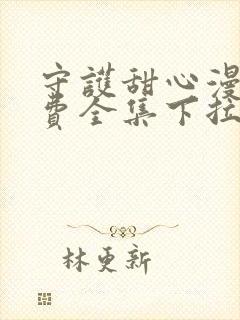 守護甜心漫
費全集下拉
林更新